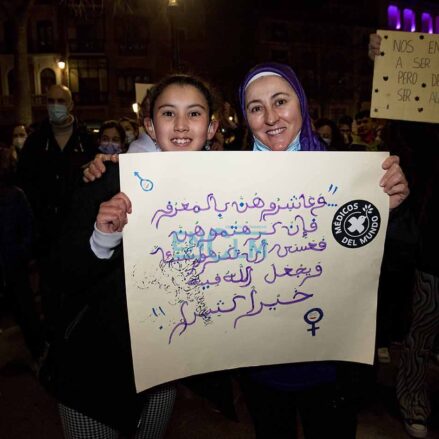 "...وعاشروهن بالمعروف
فإن كرهتموهن
فعسى أن تكرهوا شيئا
ويجعل الله فيه
خيرا كثيرا
!!
MÉDICOS DEL MUNDO
NOS EN
A SER
PERO
SER